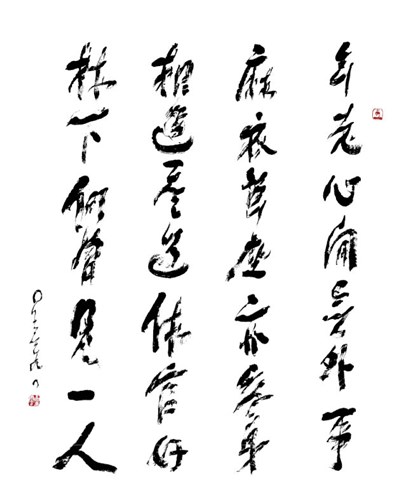 年老心閒無外事
麻衣草座亦容身
相逢盡道休官好
林下何曾見一人